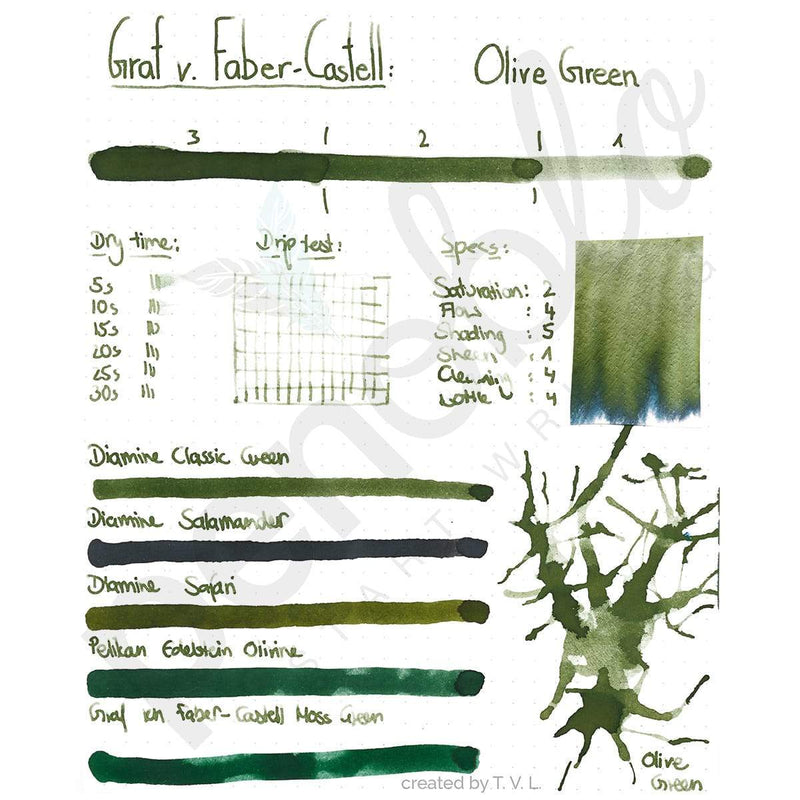 Graf v. Faber-Castell: Olive Green
3 | 2 | 1
Dry time:
5s
10s
15s
20s
25s
30s
Drip test:
Specs:
Saturation: 2
Flow : 4
Shading : 5
Sheen : 1
Cleaning : 4
Bottle : 4
Diamine Classic Green
Diamine Salamander
Diamine Safari
Pelikan Edelstein Olivine
Graf von Faber-Castell Moss Green
Olive
Green
penoblo
START WRITING
created by T. V. L.